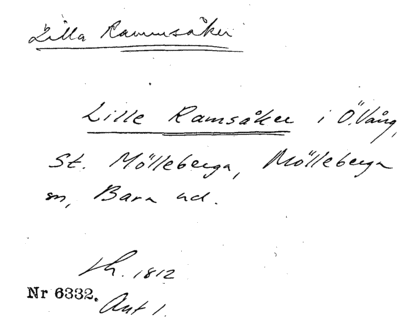 Lilla Rammsåker
Lille Ramsåker i Ö. Vång,
St. Mölleberga, Mölleberga
sn, Bara hd.
1812
Nr 6332.
Ant 1.